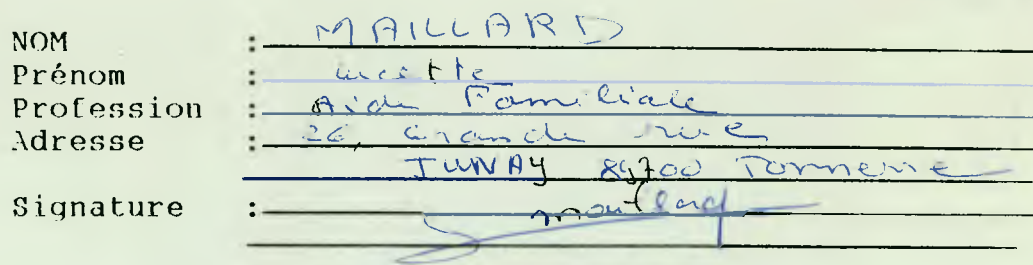 NOM : MAILLARD
Prénom : Lucette
Profession : Aide Familiale
Adresse : 26, Grande rue
JUNAY 89700 Tonnerre
Signature : Maillard